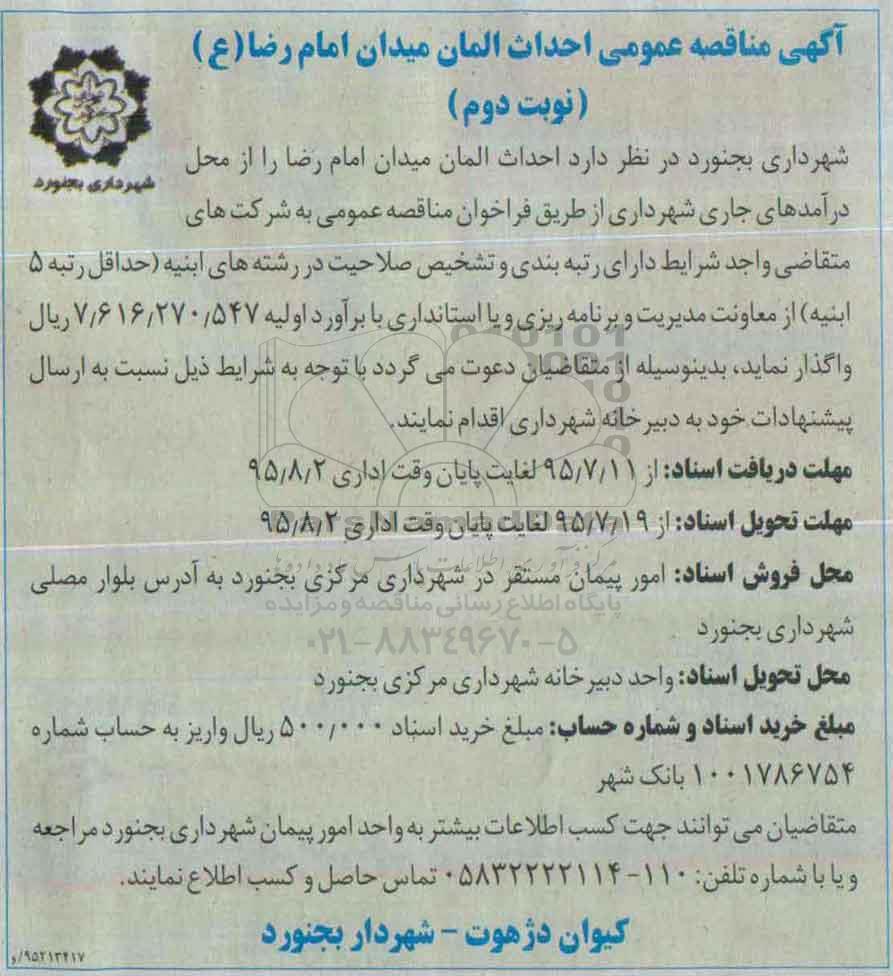 آگهی مناقصه عمومی احداث المان میدان امام رضا (ع)
(نوبت دوم)
شهرداری بجنورد
شهرداری بجنورد در نظر دارد احداث المان میدان امام رضا را از محل
درآمدهای جاری شهرداری از طریق فراخوان مناقصه عمومی به شرکت های
متقاضی واجد شرایط دارای رتبه بندی و تشخیص صلاحیت در رشته های ابنیه (حداقل رتبه ۵
ابنیه) از معاونت مدیریت و برنامه ریزی و یا استانداری با برآورد اولیه ۷٫۶۱۶٫۲۷۰٫۵۴۷ ریال
واگذار نماید، بدینوسیله از متقاضیان دعوت می گردد با توجه به شرایط ذیل نسبت به ارسال
پیشنهادات خود به دبیرخانه شهرداری اقدام نمایند.
مهلت دریافت اسناد: از ۹۵٫۷٫۱۱ لغایت پایان وقت اداری ۹۵٫۸٫۲
مهلت تحویل اسناد: از ۹۵٫۷٫۱۹ لغایت پایان وقت اداری ۹۵٫۸٫۲
محل فروش اسناد: امور پیمان مستقر در شهرداری مرکزی بجنورد به آدرس بلوار مصلی
پایگاه اطلاع رسانی مناقصه و مزایده
شهرداری بجنورد
۰۲۱-۸۸۳۴۹۶۷۰-۵
محل تحویل اسناد: واحد دبیرخانه شهرداری مرکزی بجنورد
مبلغ خرید اسناد و شماره حساب: مبلغ خرید اسناد ۵۰۰٫۰۰۰ ریال واریز به حساب شماره
۱۰۰۱۷۸۶۷۵۴ بانک شهر
متقاضیان می توانند جهت کسب اطلاعات بیشتر به واحد امور پیمان شهرداری بجنورد مراجعه
و یا با شماره تلفن: ۱۱۰-۰۵۸۳۲۲۲۲۱۱۴ تماس حاصل و کسب اطلاع نمایند.
کیوان دژهوت - شهردار بجنورد
۹۵۲۱۳۴۱۷/و